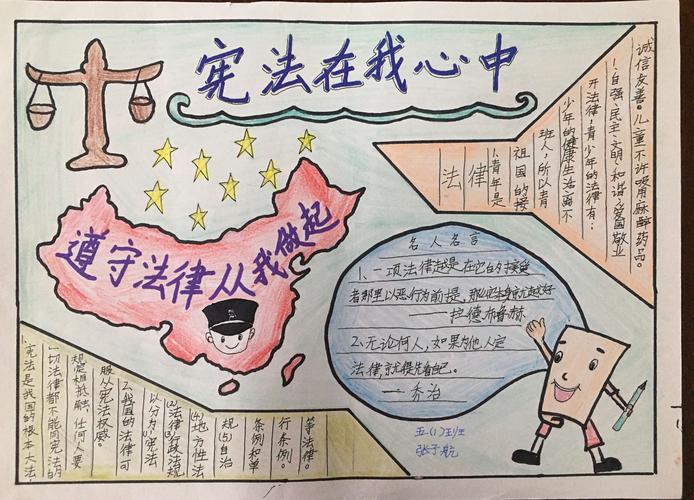 宪法在我心中
遵守法律从我做起
法
律
1、青年是
祖国的接
班人,所以青
少年的健康生活离不
开法律,青少年的法律有:
1.自强、民主、文明、和谐、爱国敬业
诚信友善。儿童不许吸用麻醉药品。
名人名言
1、一项法律越是在它的接受
者那里以恶行为前提,那么它本身就越好
——拉德布鲁赫
2、无论何人,如果为他人定
法律,就得先看自己。
——乔治
五(1)班
张子航
1、宪法是我国的根本大法
一切法律都不能同宪法的
规定相抵触,任何人要
服从宪法权威。
2、我国的法律可
以分为(1)宪法
(2)法律(3)行政法规
(4)地方性法
规(5)自治
条例和单
行条例。
等法律。